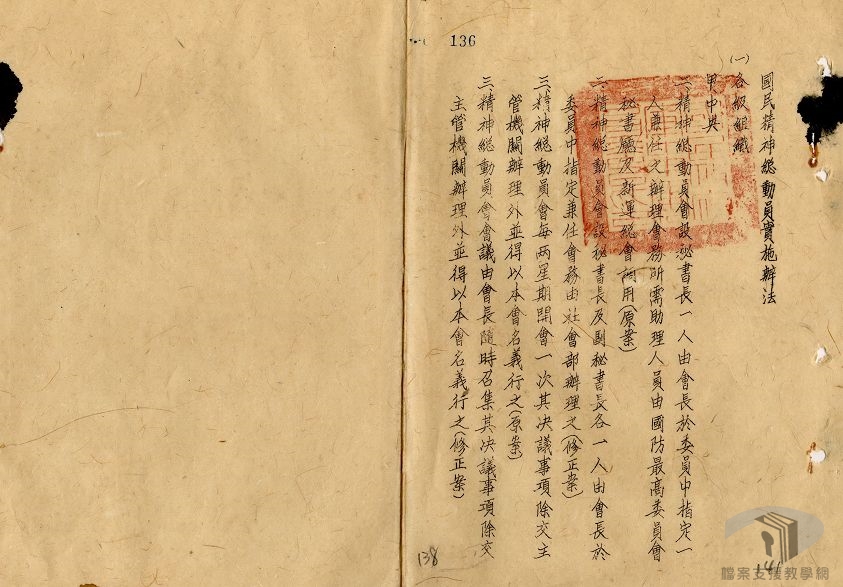 136
國民精神總動員實施辦法
(一)各級組織
甲中央
二、精神總動員會設秘書長一人由會長於委員中指定一
人兼任之辦理會務所需助理人員由國防最高委員會
秘書廳及新運總會調用(原案)
二、精神總動員會設秘書長及副秘書長各一人由會長於
委員中指定兼任會務由社會部辦理之(修正案)
三、精神總動員會每两星期開會一次其決議事項除交主
管機關辦理外並得以本會名義行之(原案)
三、精神總動員會會議由會長隨時召集其決議事項除交
主管機關辦理外並得以本會名義行之(修正案)
138
檔案支援教學網